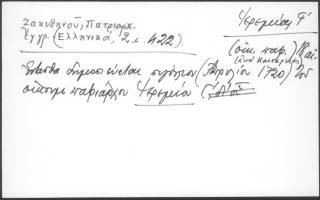 Ζακυθηνοῦ, Πατριαρχ.
Ἔγγρ. (Ἑλληνικά, 2, σ. 422)
Ἱερεμίας Γ'
(οἰκ. πατρ.)
(ἀπό Καισαρείας)
Ἐνταῦθα δημοσιεύεται σιγίλλιον (Ἀπριλίου 1720) τοῦ
οἰκουμ. πατριάρχου Ἱερεμία Γ'